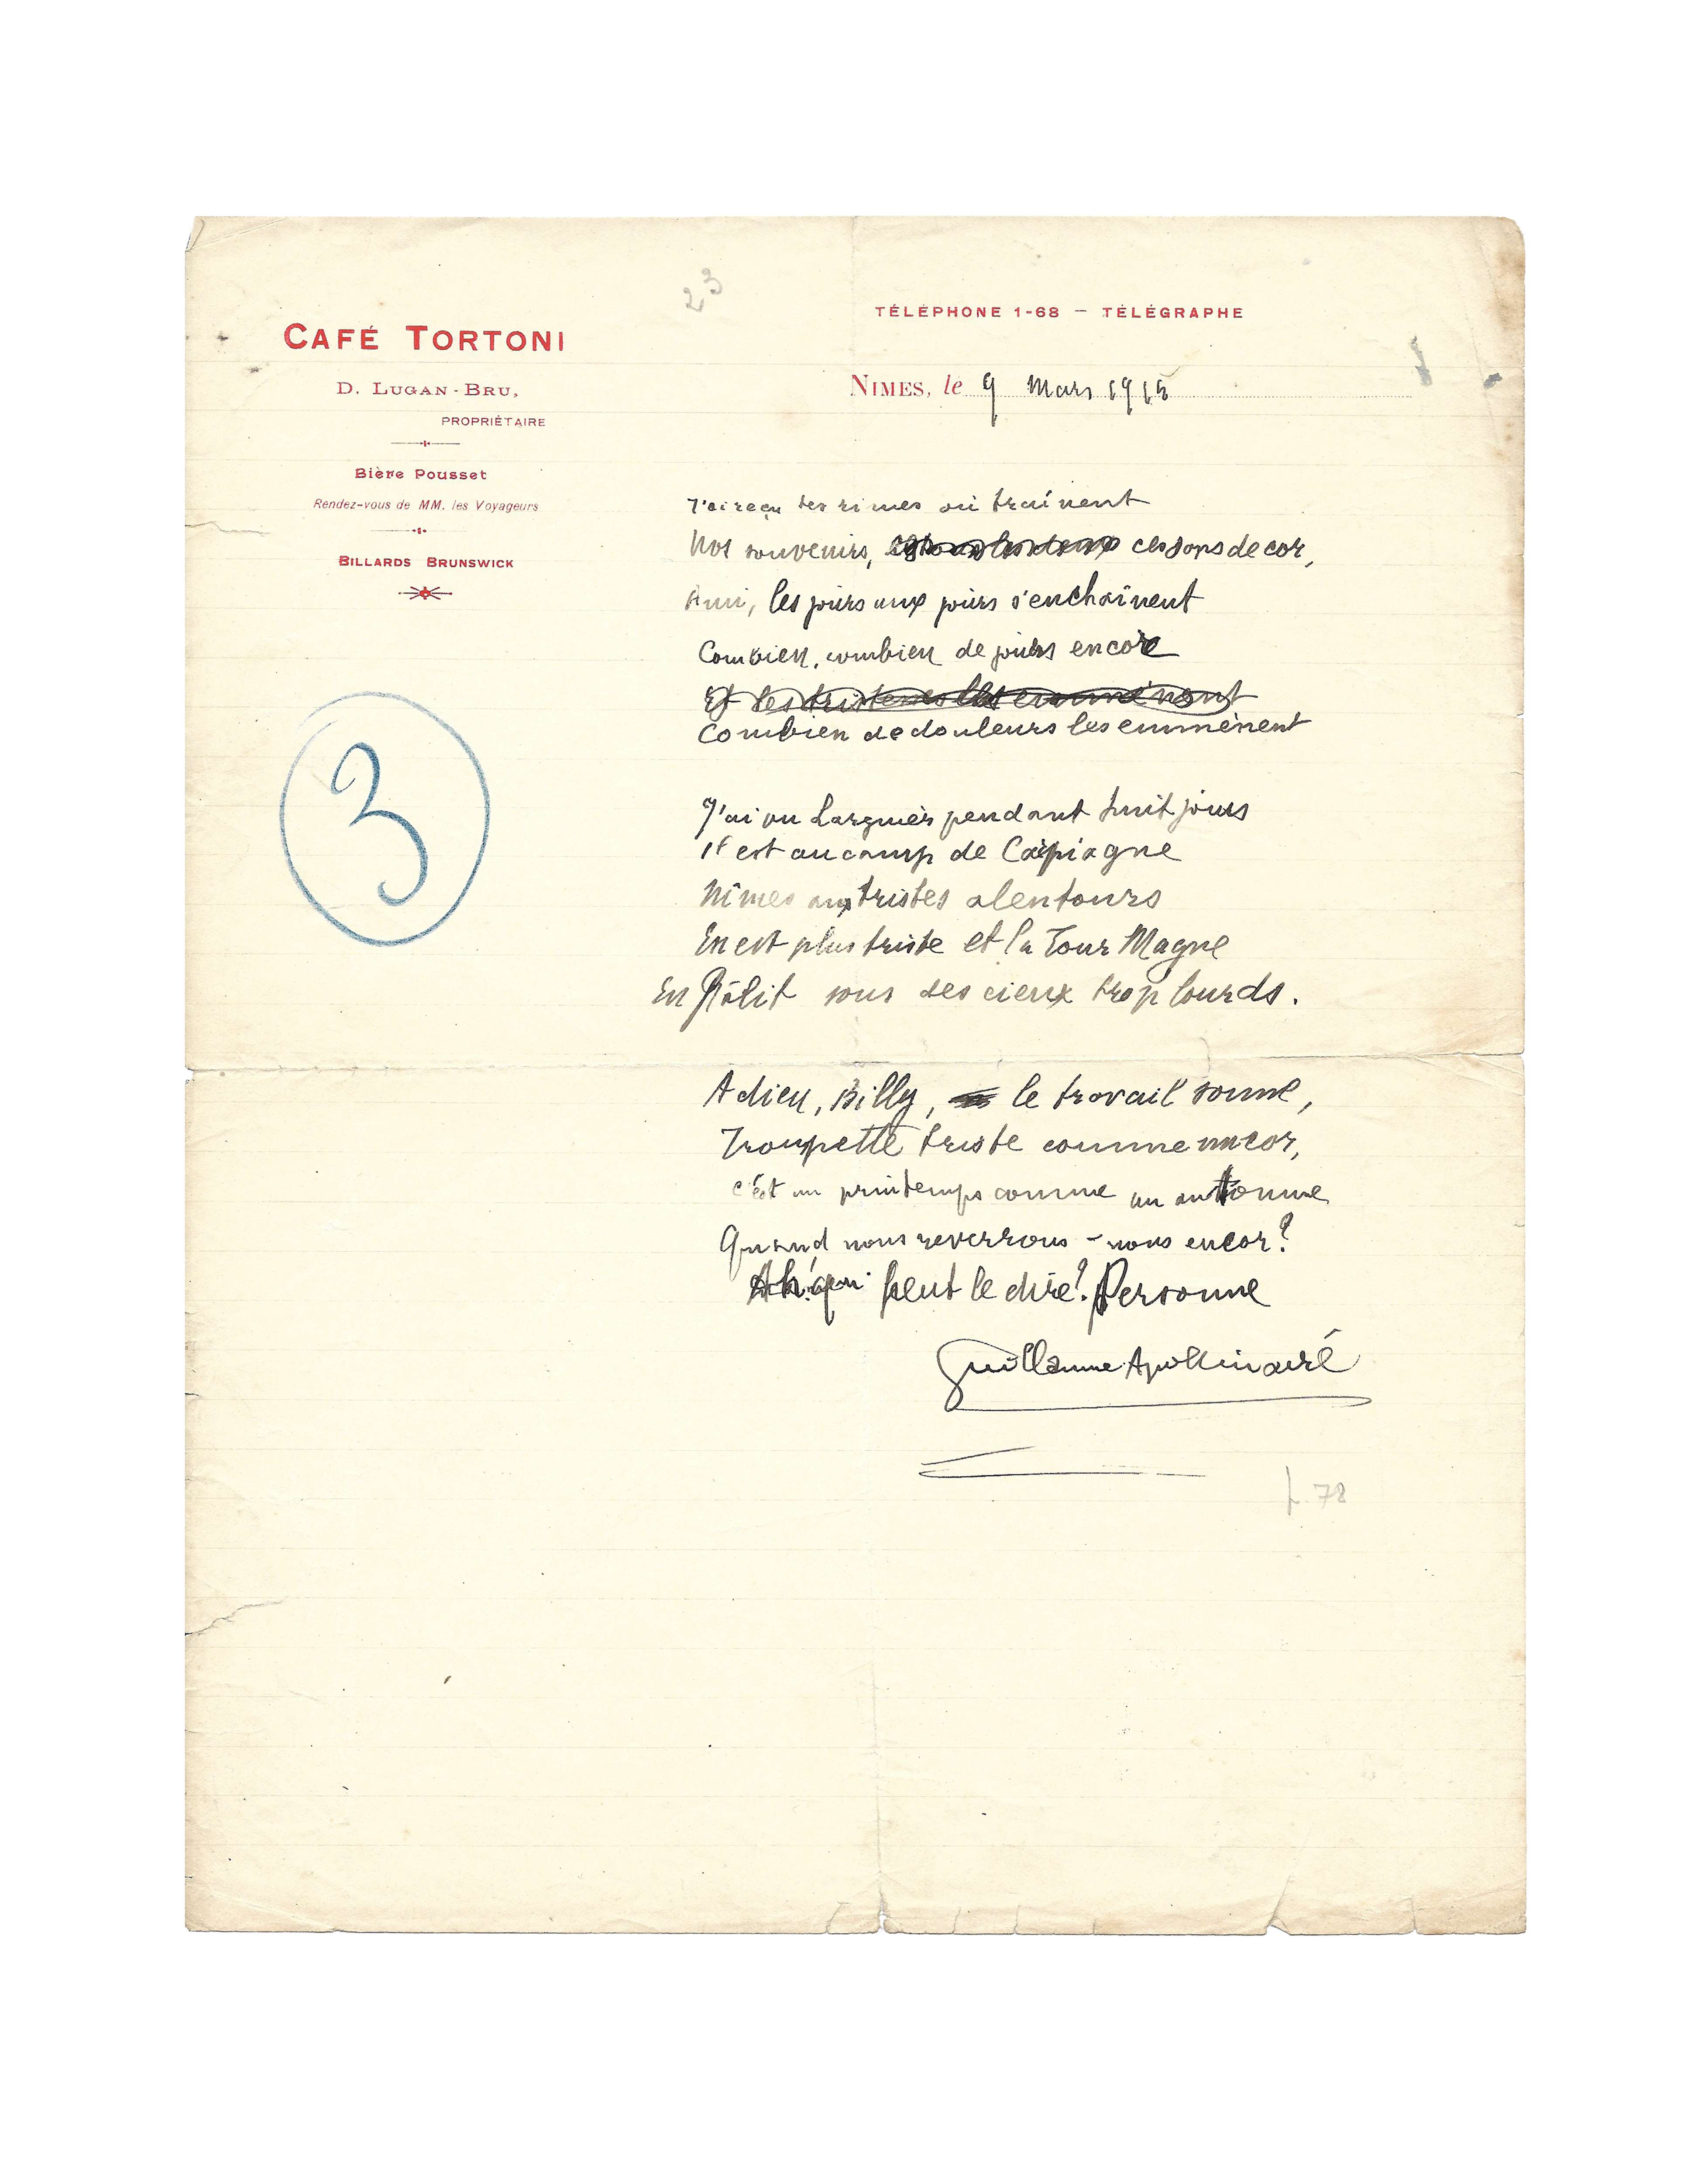 23
TÉLÉPHONE 1-68 — TÉLÉGRAPHE
CAFÉ TORTONI
D. LUGAN-BRU,
PROPRIÉTAIRE
Bière Pousset
Rendez-vous de MM. les Voyageurs
BILLARDS BRUNSWICK
NIMES, le 9 Mars 1915
3
J'ai reçu tes rimes où traînent
Nos souvenirs, ces sons de cor,
Ami, les jours aux jours s'enchaînent
Combien, combien de jours encore
Et les tristesses les emmènent
Combien de douleurs les emmènent
J'ai vu Larguier pendant huit jours
Il est au camp de Carpiagne
Nîmes aux tristes alentours
En est plus triste et la Tour Magne
En Pâlit sous des cieux trop lourds.
Adieu, Billy, le travail sonne,
Trompette triste comme un cor,
C'est un printemps comme un automne
Quand nous reverrons-nous encor?
Ah! qui peut le dire? Personne
Guillaume Apollinaire
p. 78